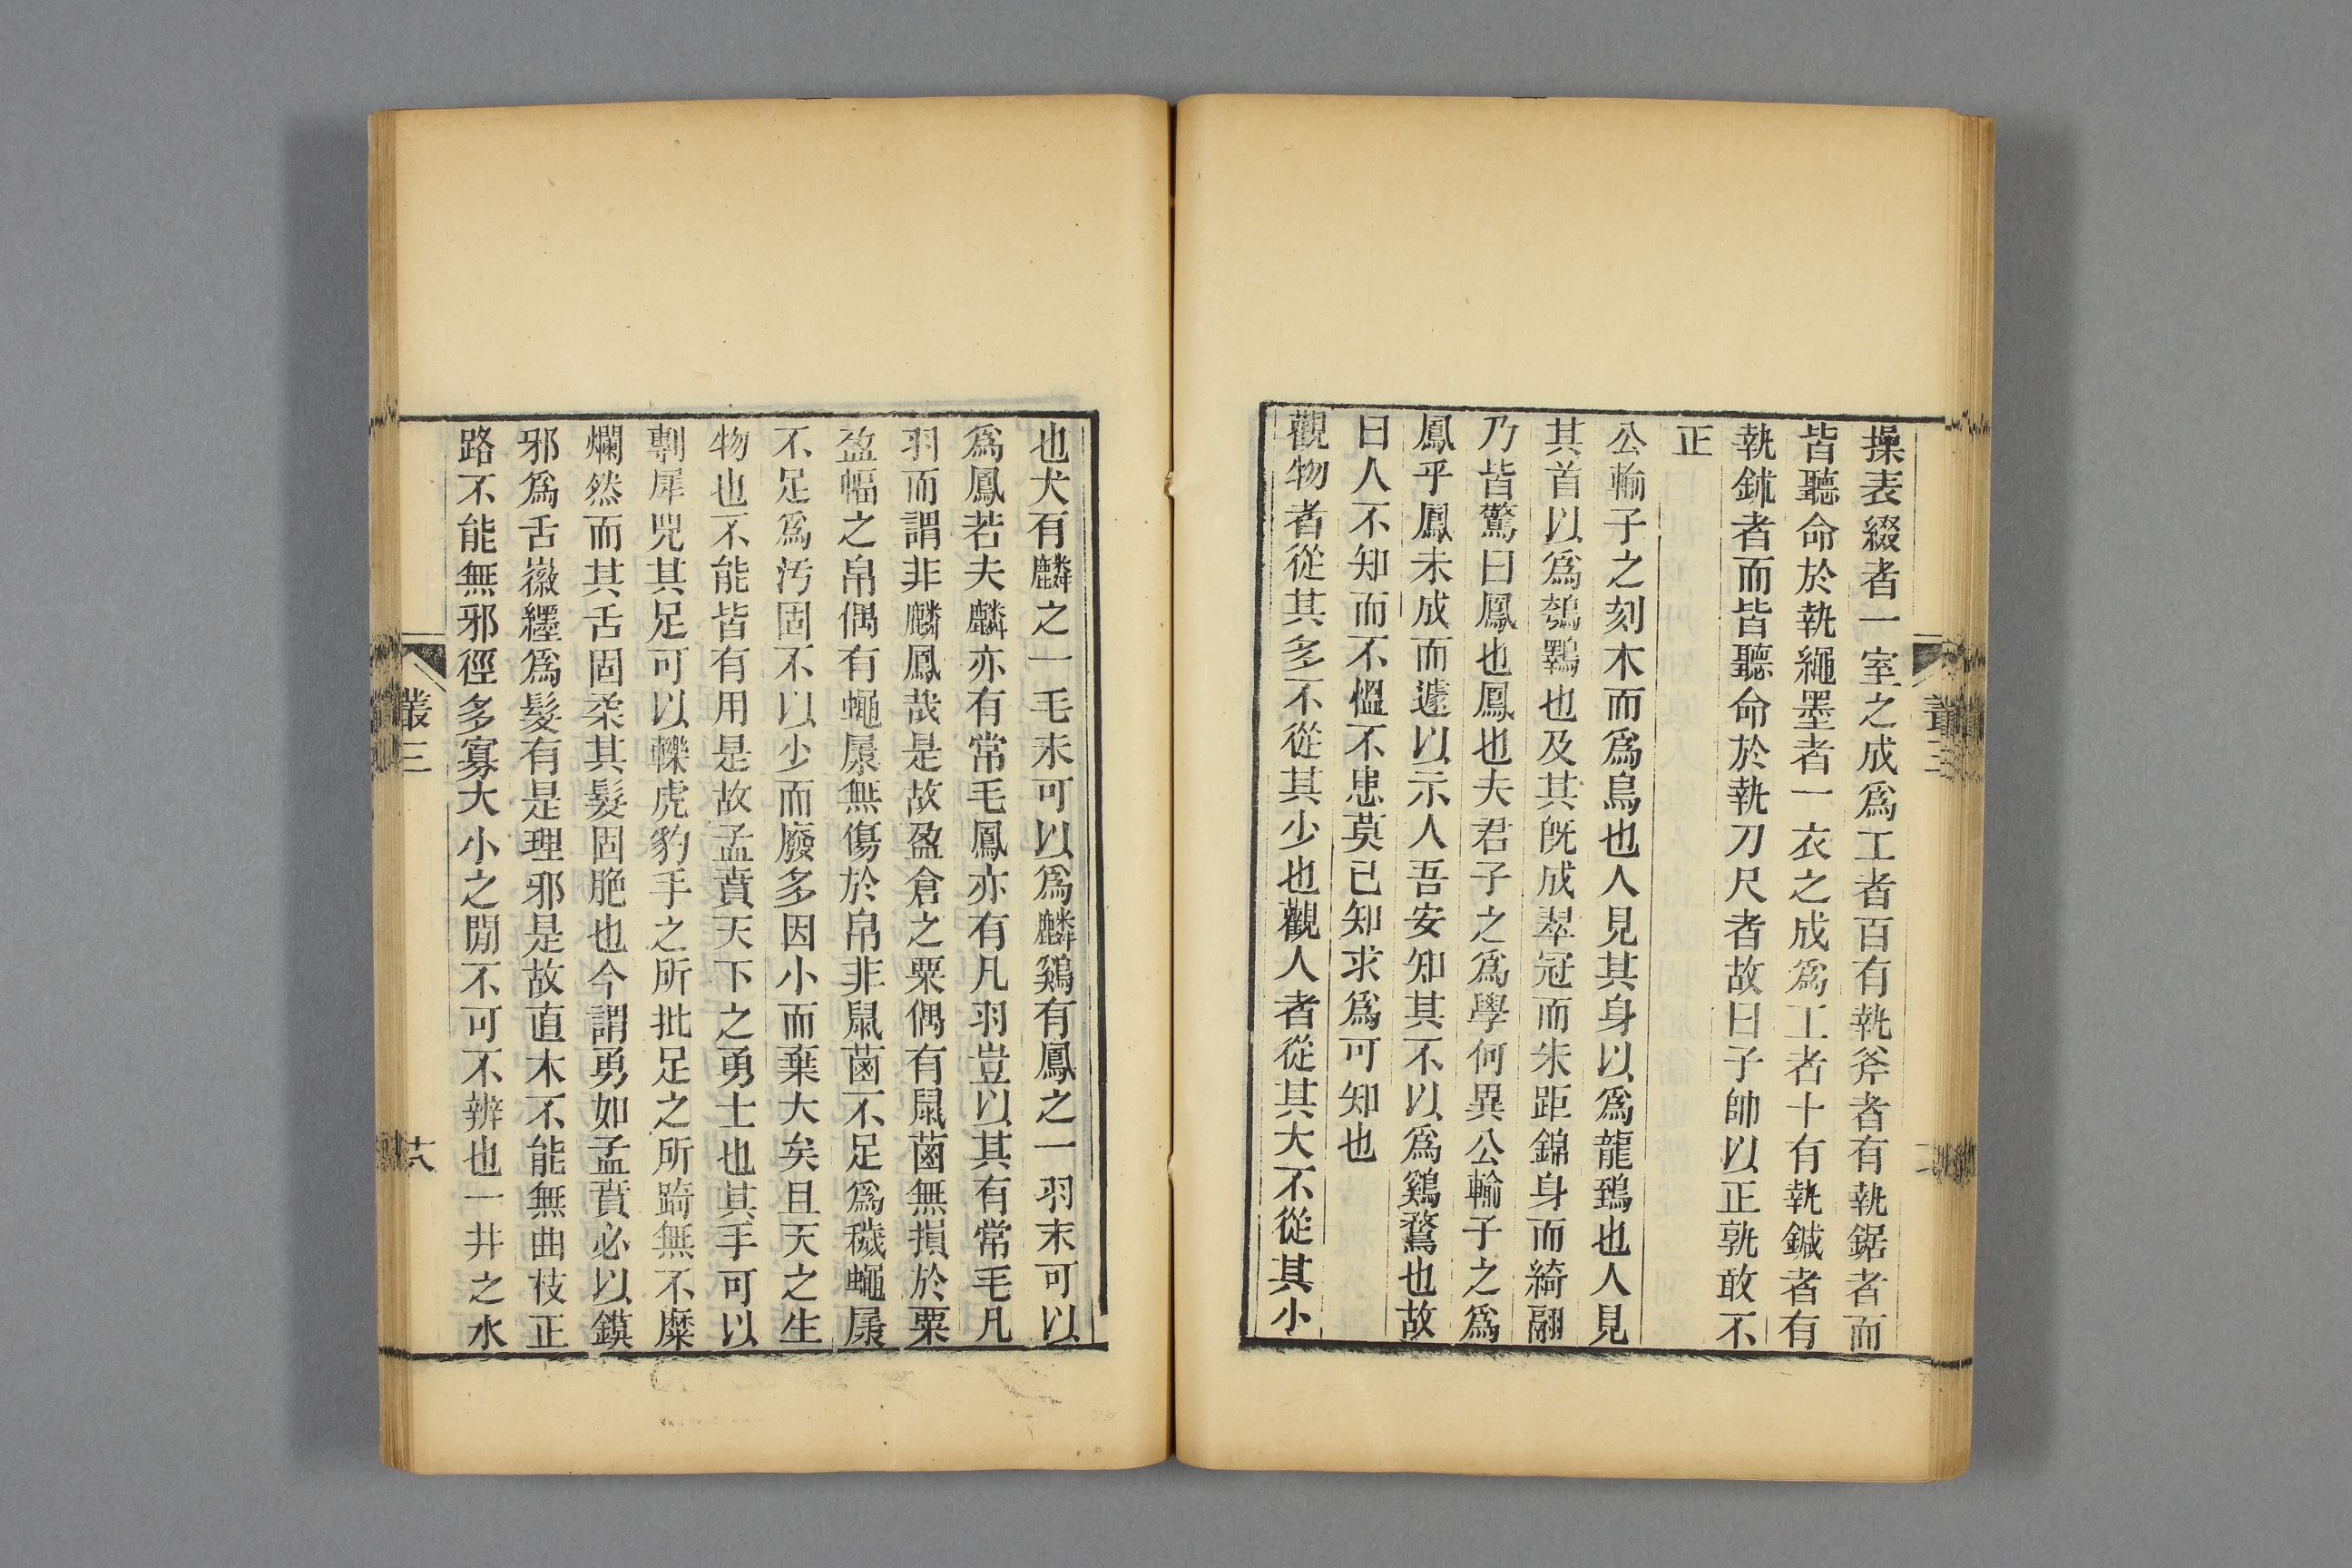 操表綴者一室之成爲工者百有執斧者有執鋸者而
皆聽命於執繩墨者一衣之成爲工者十有執鍼者有
執鉥者而皆聽命於執刀尺者故曰子帥以正孰敢不
正
公輸子之刻木而爲鳥也人見其身以爲龍鵄也人見
其首以爲鴮䴀也及其旣成翠冠而朱距錦身而綺翮
乃皆驚曰鳳也鳳也夫君子之爲學何異公輸子之爲
鳳乎鳳未成而遽以示人吾安知其不以爲鷄鶩也故
曰人不知而不慍不患莫己知求爲可知也
觀物者從其多不從其少也觀人者從其大不從其小
也犬有麟之一毛未可以爲麟鷄有鳳之一羽未可以
爲鳳若夫麟亦有常毛鳳亦有凡羽豈以其有常毛凡
羽而謂非麟鳳哉是故盈倉之粟偶有鼠菌無損於粟
盈幅之帛偶有蠅𡱁無傷於帛非鼠菌不足爲穢蠅𡱁
不足爲汚固不以少而廢多因小而棄大矣且天之生
物也不能皆有用是故孟賁天下之勇士也其手可以
剸犀兕其足可以轢虎豹手之所批足之所踦無不糜
爛然而其舌固柔其髮固脆也今謂勇如孟賁必以鏌
邪爲舌徽纆爲髮有是理邪是故直木不能無曲枝正
路不能無邪徑多寡大小之閒不可不辨也一井之水
叢三
十八